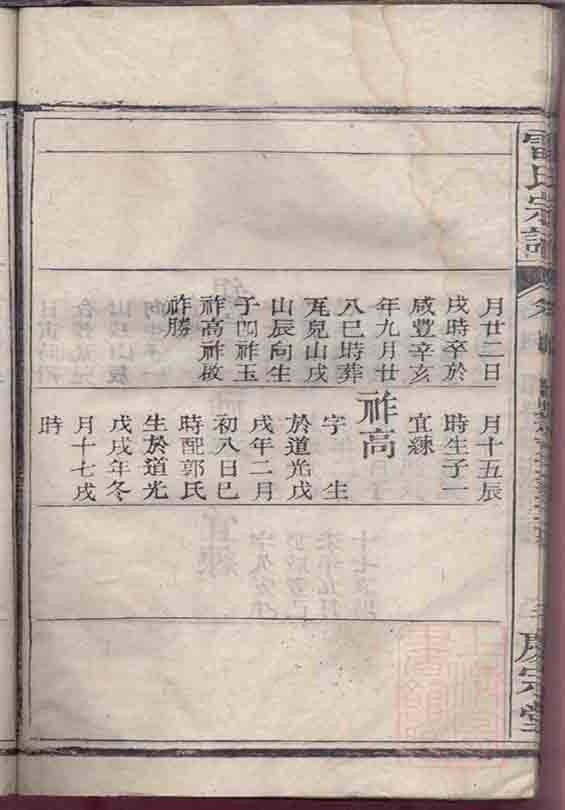 雷氏宗譜
月廿二日
戌時卒於
咸豐辛亥
年九月廿
八巳時葬
瓦兒山戌
山辰向生
子四祚玉
祚高祚啟
祚勝
月十五辰
時生子一
宜練
祚高
字 生
於道光戊
戌年二月
初八日巳
時配郭氏
生於道光
戊戌年冬
月十七戌
時
宗堂